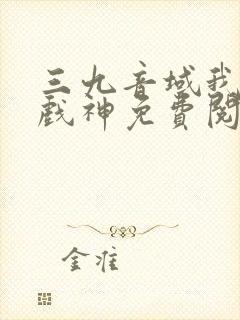 三九音域我
戲神免費閱
金淮